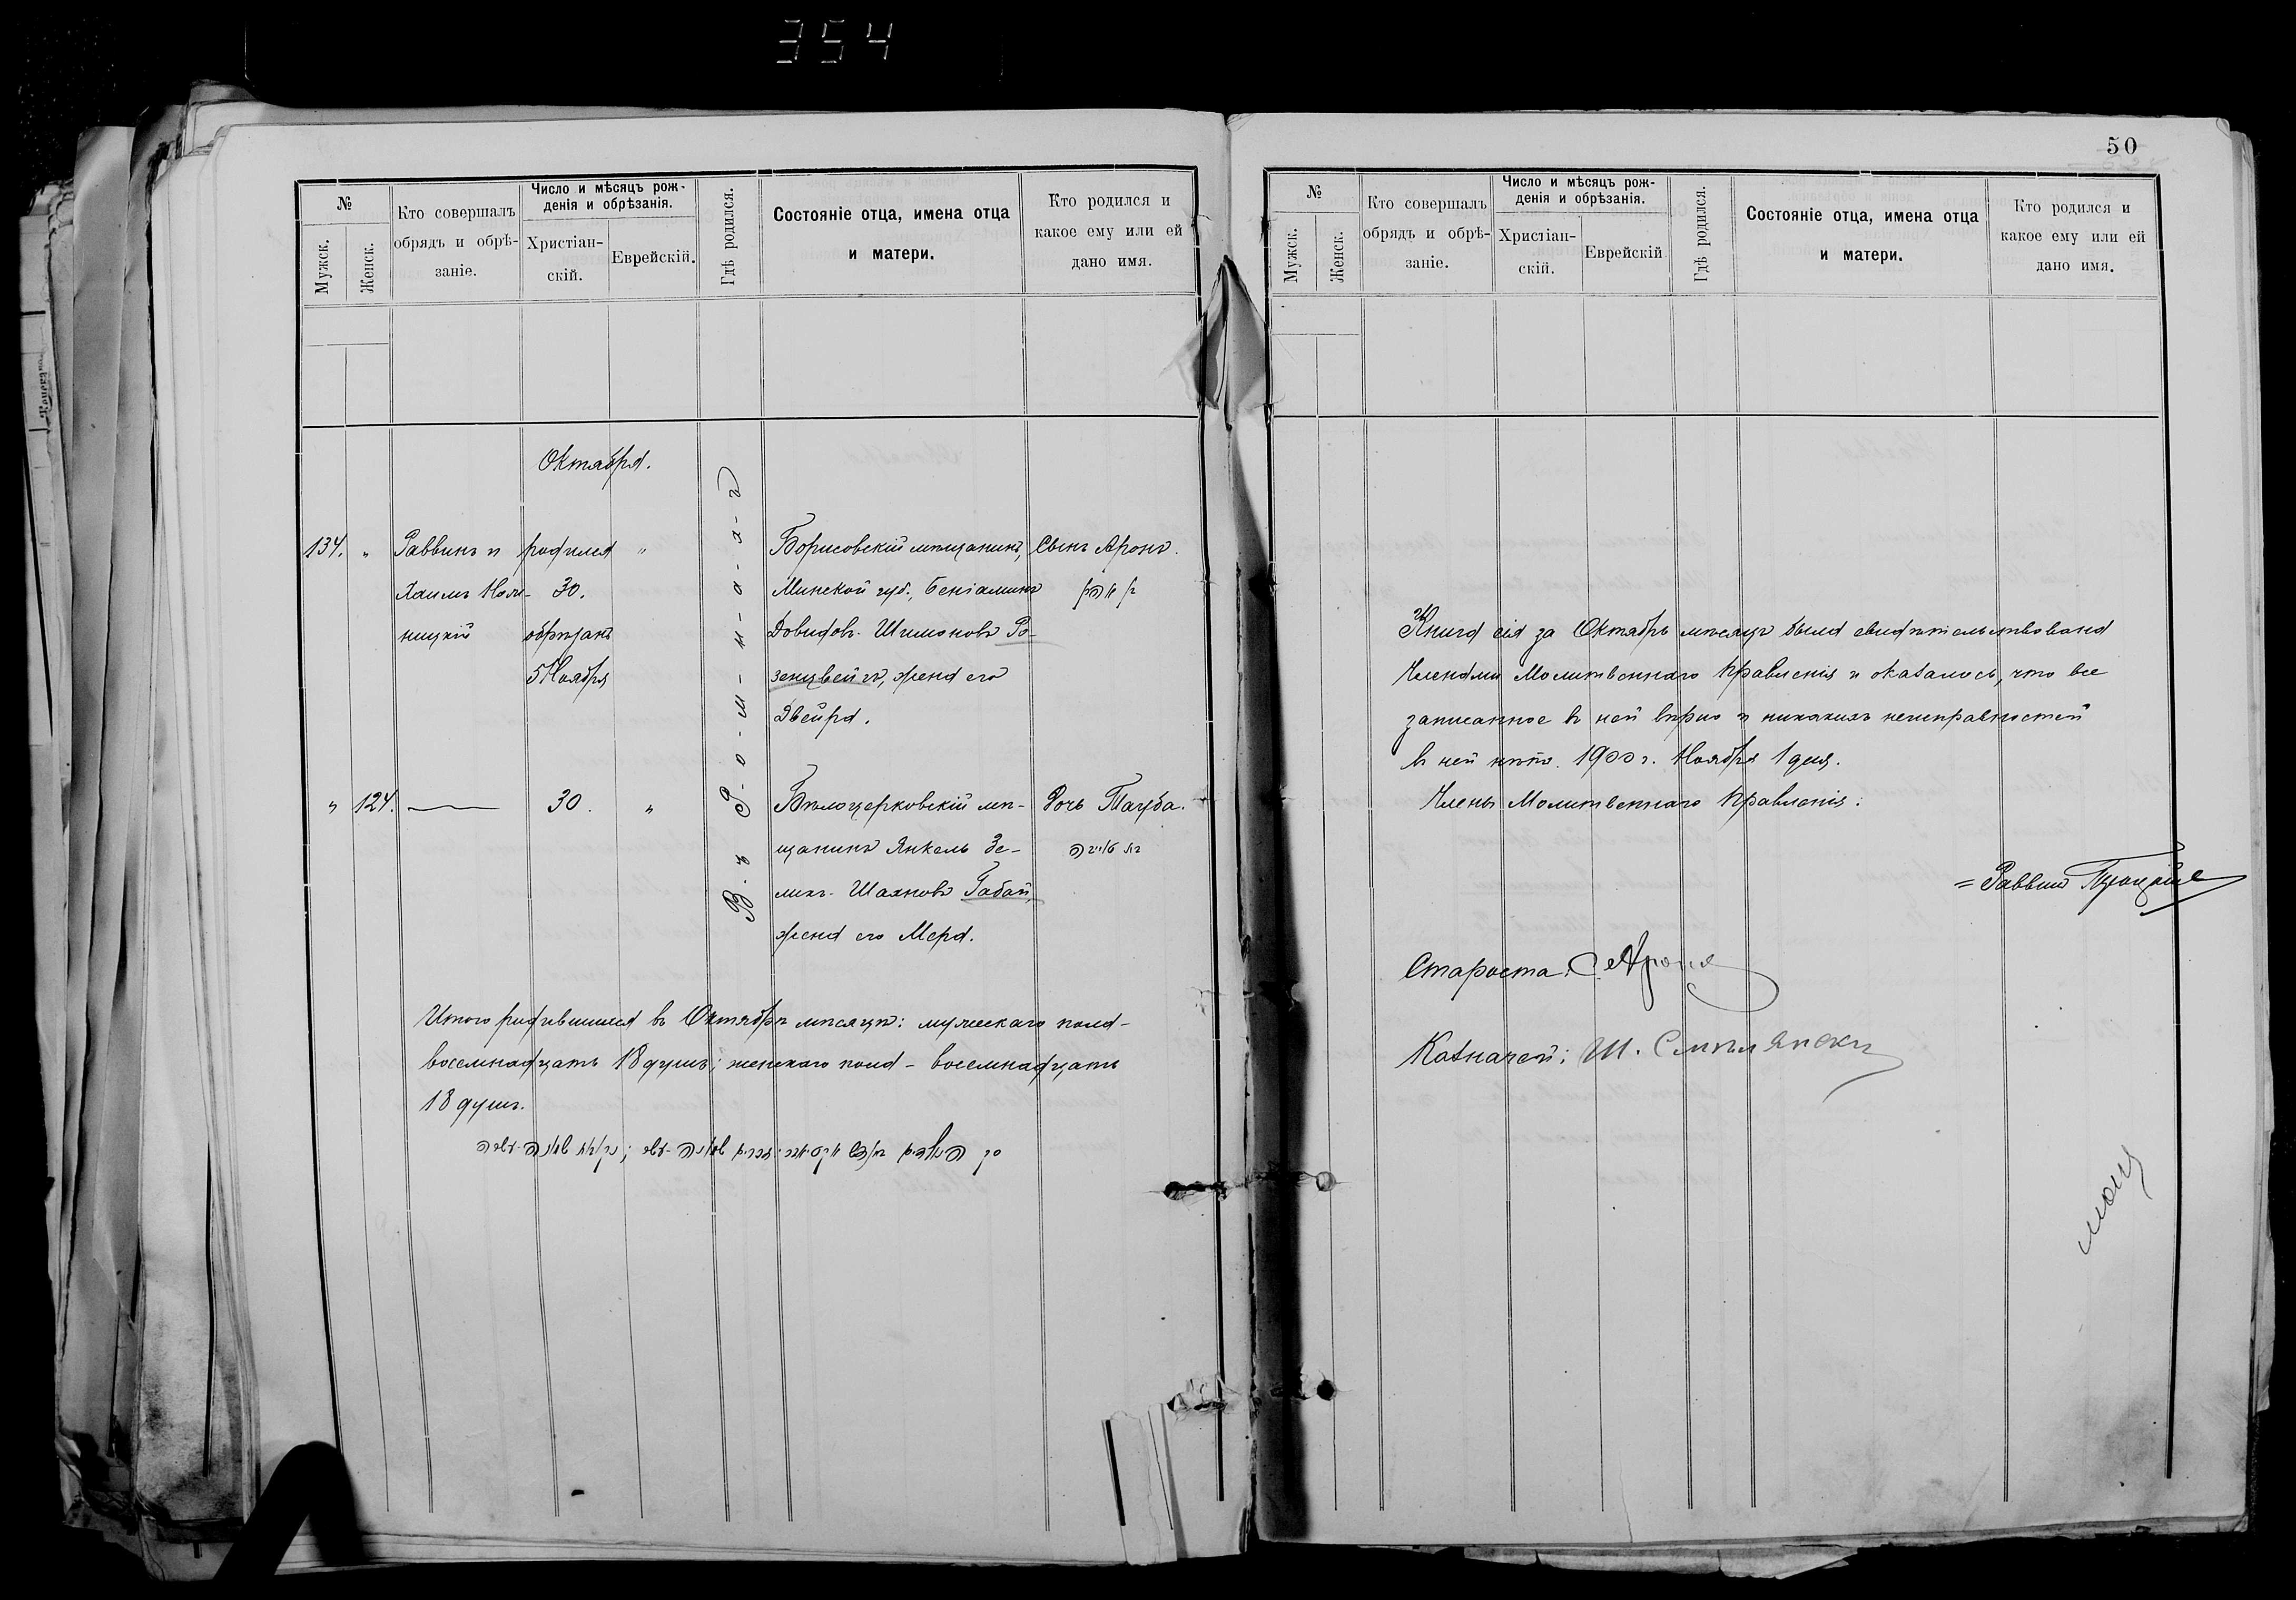 354
№
Мужск.
Женск.
Кто совершалъ
обрядъ и обрѣ-
заніе.
Число и мѣсяцъ рож-
денія и обрѣзанія.
Христіан-
скій.
Еврейскій.
Гдѣ родился.
Состояніе отца, имена отца
и матери.
Кто родился и
какое ему или ей
дано имя.
Октября.
134. "
Раввинъ и
Хаимъ
ницкій
родился "
30.
обрѣзанъ
5 Ноября
Въ Р-о-м-н-а-х-ъ
Борисовскій мѣщанинъ,
Минской губ., Беніаминъ
Довидовъ Шимоновъ Ро-
зенцвейгъ, жена его
Двейра.
Сынъ Аронъ.
" 124.
30. "
Бѣлоцерковскій мѣ-
щанинъ Янкель Зе-
ликъ Шахновъ Габай,
жена его Мера.
Дочь Тауба.
Итого родившихся въ Октябрѣ мѣсяцѣ: мужескаго пола -
восемнадцать 18 душъ; женскаго пола - восемнадцать
18 душъ.
50
№
Мужск.
Женск.
Кто совершалъ
обрядъ и обрѣ-
заніе.
Число и мѣсяцъ рож-
денія и обрѣзанія.
Христіан-
скій.
Еврейскій
Гдѣ родился.
Состояніе отца, имена отца
и матери.
Кто родился и
какое ему или ей
дано имя.
Книга сія за Октябрь мѣсяцъ была свидѣтельствована
Членами Молитвеннаго Правленія и оказалось, что все
записанное въ ней вѣрно и никакихъ неисправностей
въ ней нѣтъ. 1900 г. Ноября 1 дня.
Члены Молитвеннаго Правленія:
Раввинъ
Староста:
Казначей: Ш.